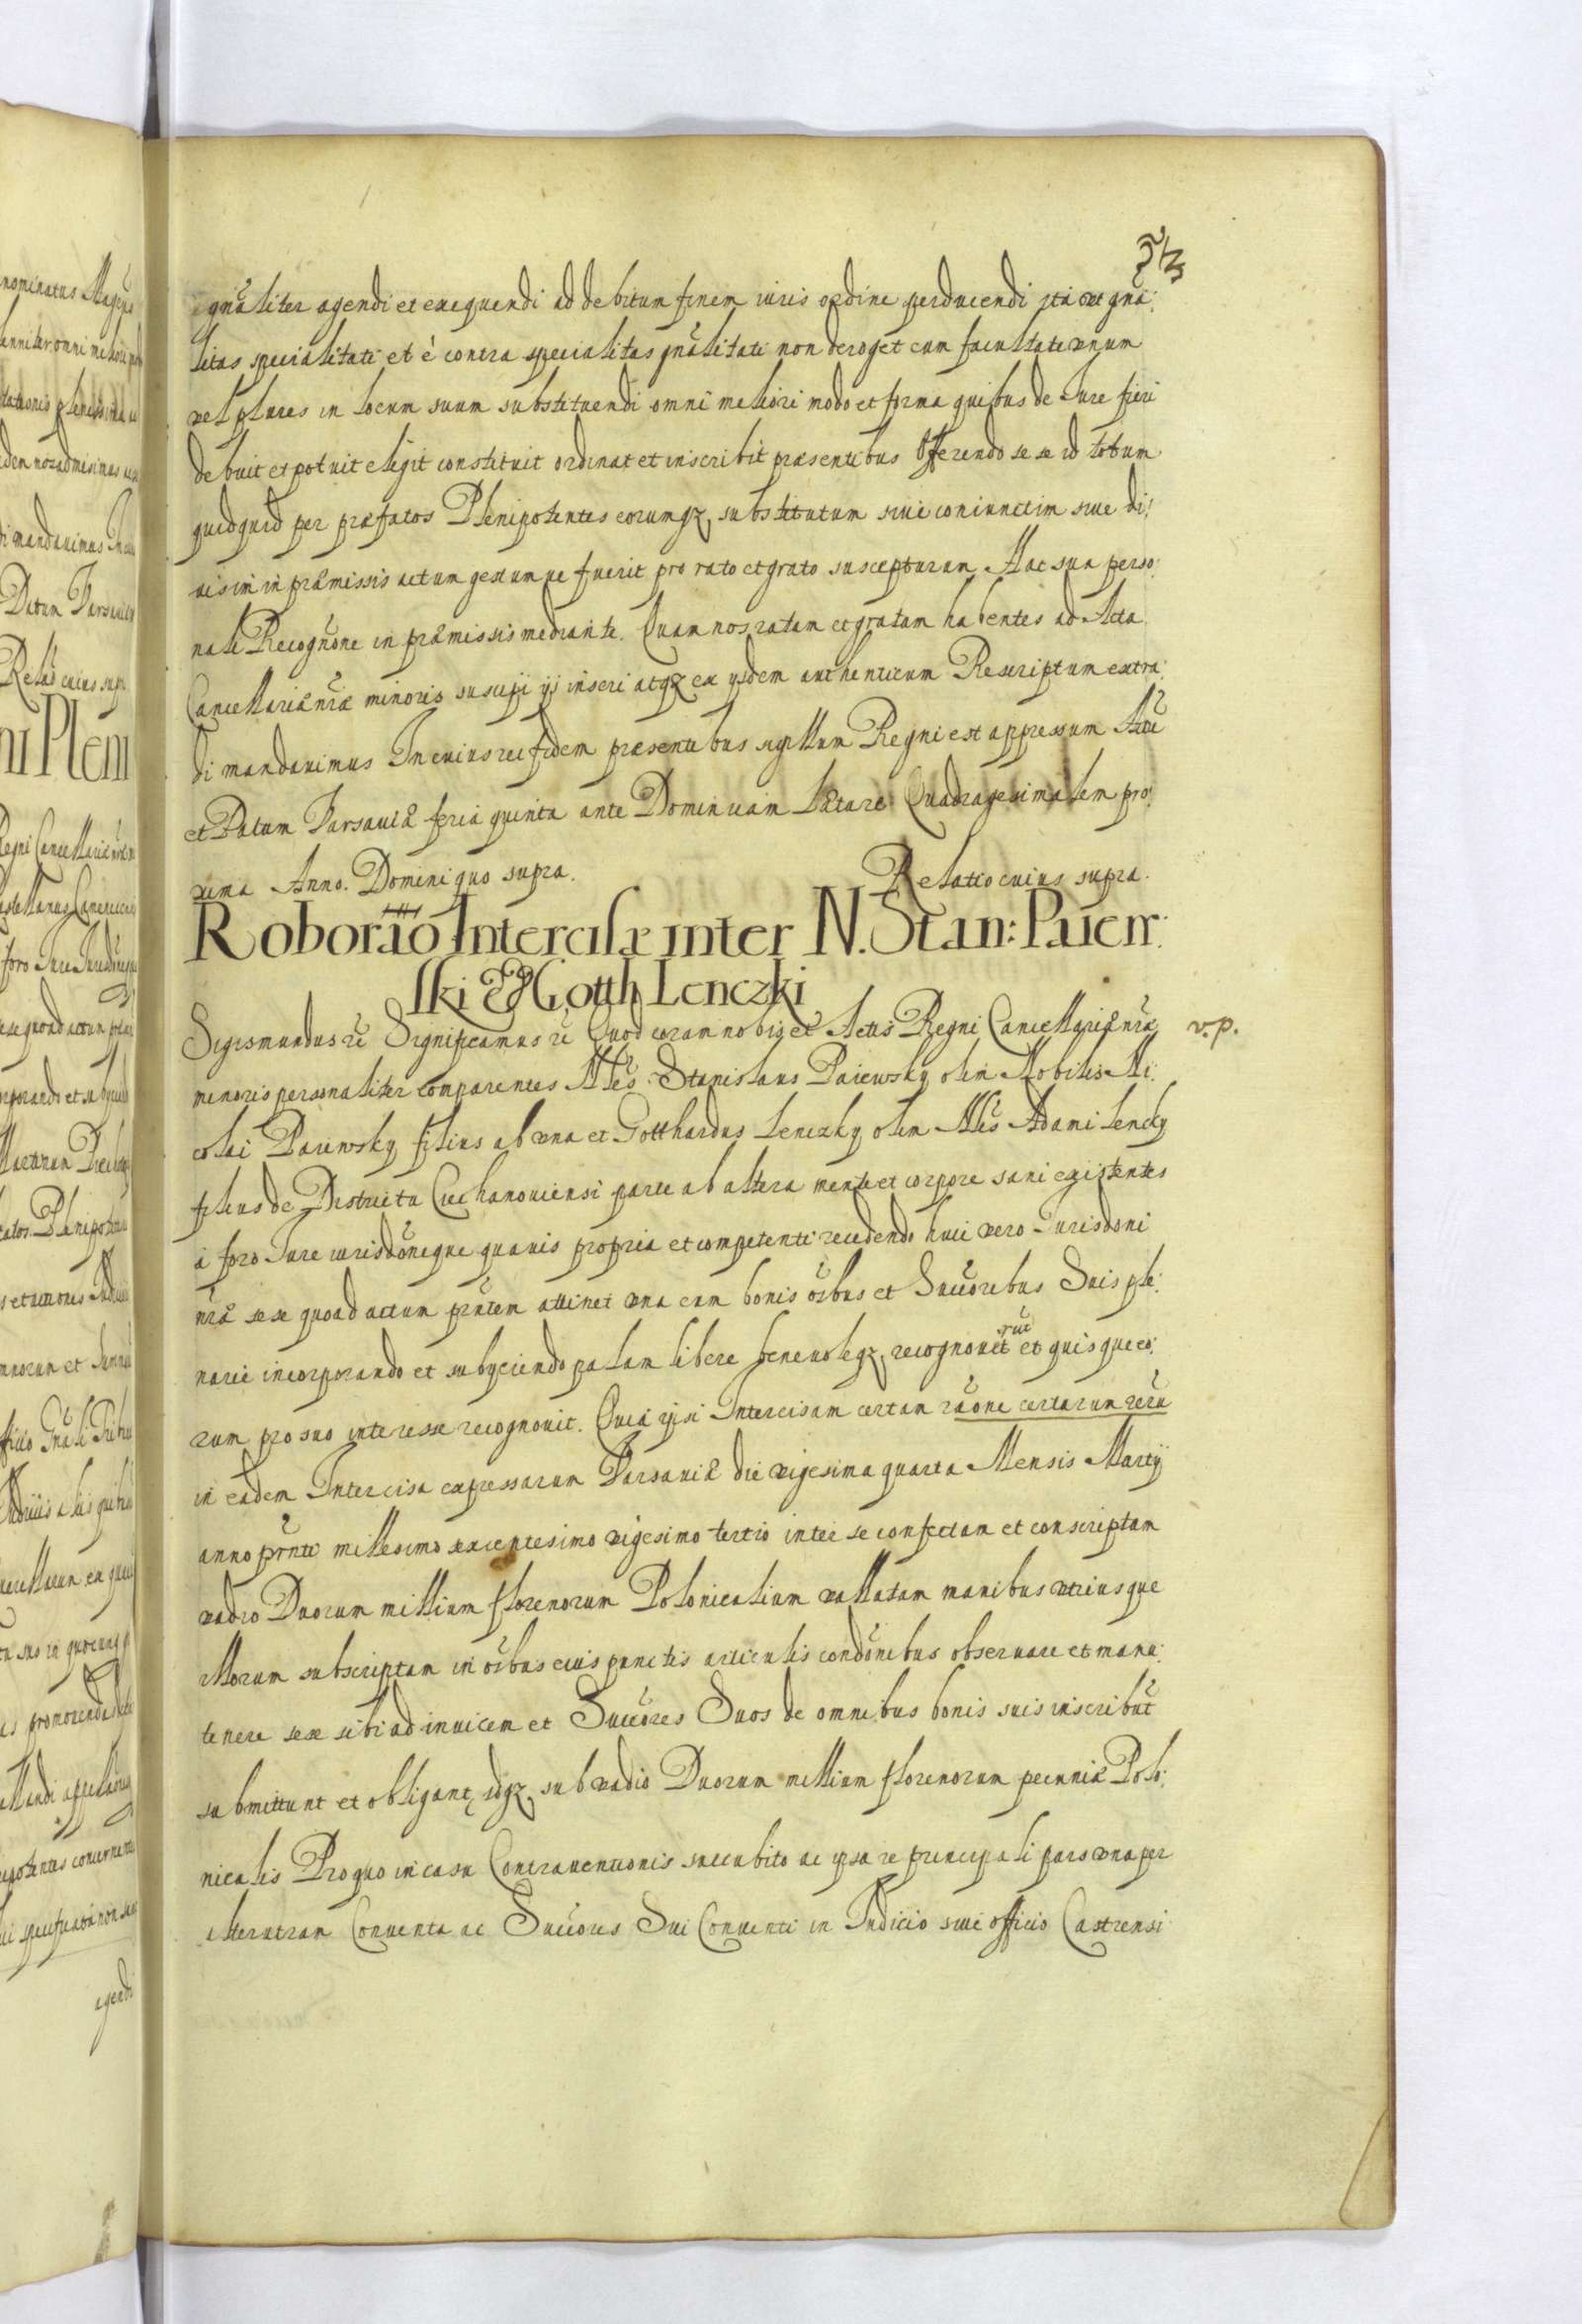 gnãliter agendi et exequendi ad debitum finem iuris ordine perducendi ita ut gnã:
litas specialitati et è contra specialitas gnãlitati non deroget cum facultate unum
vel plures in locum suum substituendi omni meliori modo et forma quibus de Iure fieri
debuit et potuit elegit constituit ordinat et inscribit præsentibus Offerendo se se id totum
quidquid per præfatos Plenipotentes eorumqz substitutum siue coniunctim siue di:
uisim in præmissis actum gestumue fuerit pro rato et grato suscepturum Hac sua perso:
nali Recognõne in præmissis mediante. Quam nos ratam et gratam habentes ad Acta
Cancellariæ nræ minoris suscipi ijs inseri atqz ex ijsdem authenticum Rescriptum extra:
di mandauimus In cuius rei fidem præsentibus sigillum Regni est appressum Actũ
et Datum Varsauiæ feria quinta ante Dominicam Lætare Quadragesimalem pro:
xima Anno. Domini quo supra. Relatio cuius supra.
Roborão Intercisæ inter N. Stan: Paiew:
ski & Gotth Lenczki
Sigismundus rẽ Significamus rẽ Quod coram nobis et Actis Regni Cancellariæ nræ v.p.
minoris personaliter comparentes Nlẽs Stanislaus Paiewsky olim Nobilis Ni:
colai Paiewsky filius ab una et Gotthardus Lenczky olim Nlis Adami Lencky
filius de Districtu Ciechanouiensi parte ab altera mente et corpore sani existentes
à foro Iure iurisdõneque quauis propria et competenti recedendo huic vero Iurisdõni
nræ sese quoad actum pñtem attinet una cum bonis oĩbus et Succõribus Suis ple:
narie incorporando et subyciendo palam libere beneuoleqz recognouit runt et quisque eo:
rum pro suo interesse recognouit. Quia ipsi Intercisam certam raõne certarum rerũ
in eadem Intercisa expressarum Varsauiæ die vigesima quarta Mensis Martij
anno prñte millesimo sexcentesimo vigesimo tertio inter se confectam et conscriptam
vadio Duorum millium florenorum Polonicalium vallatam manibus utriusque
illorum subscriptam in oĩbus eius punctis articulis condõnibus obseruare et manu:
tenere sese sibi ad inuicem et Succõres Suos de omnibus bonis suis inscribũt
submittunt et obligant, idqz sub vadio Duorum millium florenorum pecuniæ Polo:
nicalis Pro quo in casu Contrauentionis succubito ac ipsa re principali pars una per
alterutram Conuenta ac Succõres Sui Conuenti in Iudicio siue officio Castrensi